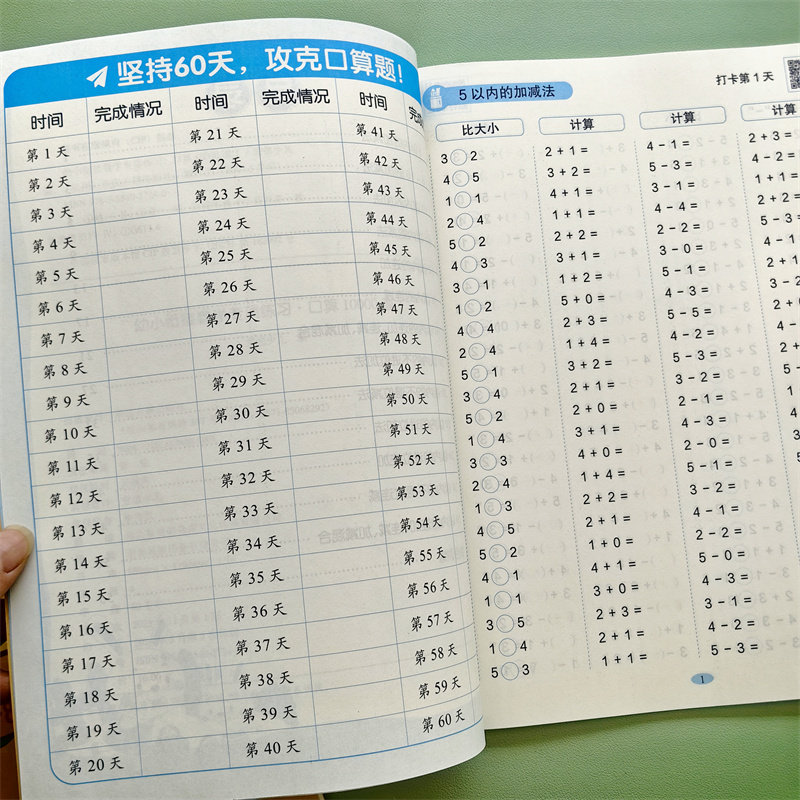 坚持60天，攻克口算题！
时间 完成情况 时间 完成情况 时间
第 1 天 第 21 天 第 41 天
第 2 天 第 22 天 第 42 天
第 3 天 第 23 天 第 43 天
第 4 天 第 24 天 第 44 天
第 5 天 第 25 天 第 45 天
第 6 天 第 26 天 第 46 天
第 7 天 第 27 天 第 47 天
第 8 天 第 28 天 第 48 天
第 9 天 第 29 天 第 49 天
第 10 天 第 30 天 第 50 天
第 11 天 第 31 天 第 51 天
第 12 天 第 32 天 第 52 天
第 13 天 第 33 天 第 53 天
第 14 天 第 34 天 第 54 天
第 15 天 第 35 天 第 55 天
第 16 天 第 36 天 第 56 天
第 17 天 第 37 天 第 57 天
第 18 天 第 38 天 第 58 天
第 19 天 第 39 天 第 59 天
第 20 天 第 40 天 第 60 天
5 以内的加减法
打卡第 1 天
比大小
3○2
4○5
1○1
2○4
5○2
4○3
3○1
1○2
4○4
2○4
5○1
4○2
5○2
1○4
3○3
2○4
1○3
4○5
5○2
4○1
1○1
3○5
1○4
5○3
计算
2 + 1 =
3 + 2 =
4 + 1 =
1 + 1 =
2 + 2 =
3 + 1 =
1 + 2 =
5 + 0 =
2 + 3 =
1 + 4 =
3 + 2 =
2 + 1 =
2 + 0 =
3 + 1 =
4 + 0 =
1 + 4 =
2 + 2 =
2 + 1 =
1 + 0 =
4 + 1 =
3 + 0 =
2 + 3 =
2 + 1 =
1 + 1 =
计算
4 − 1 =
5 − 3 =
3 − 1 =
4 − 4 =
2 − 2 =
3 − 0 =
5 − 1 =
4 − 3 =
5 − 5 =
4 − 2 =
5 − 3 =
3 − 2 =
2 − 1 =
4 − 3 =
2 − 0 =
5 − 1 =
3 − 2 =
4 − 1 =
2 − 2 =
5 − 0 =
4 − 3 =
3 − 1 =
4 − 2 =
5 − 3 =
计算
2 + 3 =
4 − 2 =
1 + 1
2 +
5 − 3
4 − 1
2 + 1
1